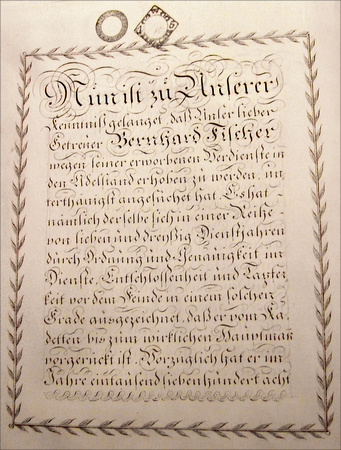 Nun ist zu Unserer
Kenntniß gelanget, daß Unser lieber
Getreuer Bernhard Fischer
wegen seiner erworbenen Verdienste in
den Adelstand erhoben zu werden, un
terthänigst angesuchet hat. Es hat
nämlich derselbe sich in einer Reihe
von sieben und dreyßig Dienstjahren
durch Ordnung und Genauigkeit im
Dienste, Entschlossenheit und Tapfer
keit vor dem Feinde in einem solchen
Grade ausgezeichnet, daß er vom Ka
detten bis zum wirklichen Hauptmañ
vorgerückt ist. Vorzüglich hat er im
Jahre eintausend siebenhundert acht